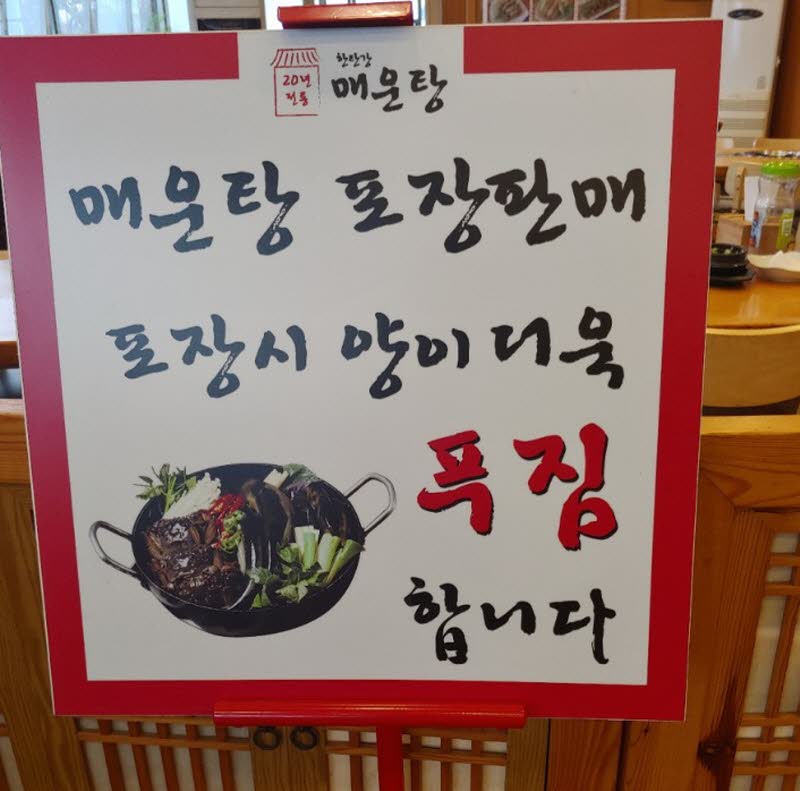 20년
전통
한탄강
매운탕
매운탕 포장판매
포장시 양이 더욱
푸짐
합니다